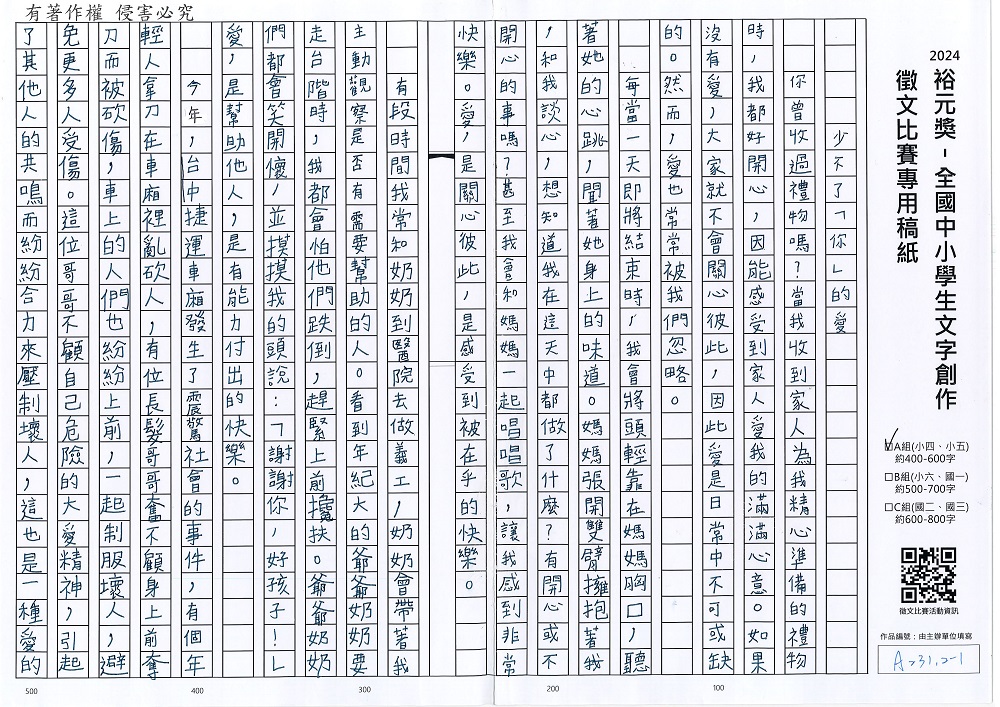 有著作權 侵害必究
2024
裕元獎-全國中小學生文字創作
徵文比賽專用稿紙
☑A組(小四、小五)
約400-600字
□B組(小六、國一)
約500-700字
□C組(國二、國三)
約600-800字
徵文比賽活動資訊
作品編號：由主辦單位填寫
A231,2-1
少不了「你」的愛
你曾收過禮物嗎？當我收到家人為我精心準備的禮物
時，我都好開心，因能感受到家人愛我的滿滿心意。如果
沒有愛，大家就不會關心彼此，因此愛是日常中不可或缺
的。然而，愛也常常被我們忽略。
每當一天即將結束時，我會將頭輕靠在媽媽胸口，聽
著她的心跳，聞著她身上的味道。媽媽張開雙臂擁抱著我
，和我談心，想知道我在這天中都做了什麼？有開心或不
開心的事嗎？甚至我會和媽媽一起唱唱歌，讓我感到非常
快樂。愛，是關心彼此，是感受到被在乎的快樂。
有段時間我常和奶奶到醫院去做義工，奶奶會帶著我
主動觀察是否有需要幫助的人。看到年紀大的爺爺奶奶要
走台階時，我都會怕他們跌倒，趕緊上前攙扶。爺爺奶奶
們都會笑開懷，並摸摸我的頭說：「謝謝你，好孩子！」
愛，是幫助他人，是有能力付出的快樂。
今年，台中捷運車廂發生了震驚社會的事件，有個年
輕人拿刀在車廂裡亂砍人，有位長髮哥哥奮不顧身，上前奪
刀而被砍傷，車上的人們也紛紛上前，一起制服壞人，避
免更多人受傷。這位哥哥不顧自己危險，的大愛精神，引起
了其他人的共鳴而紛紛合力來壓制壞人，這也是一種愛的
100
200
300
400
500